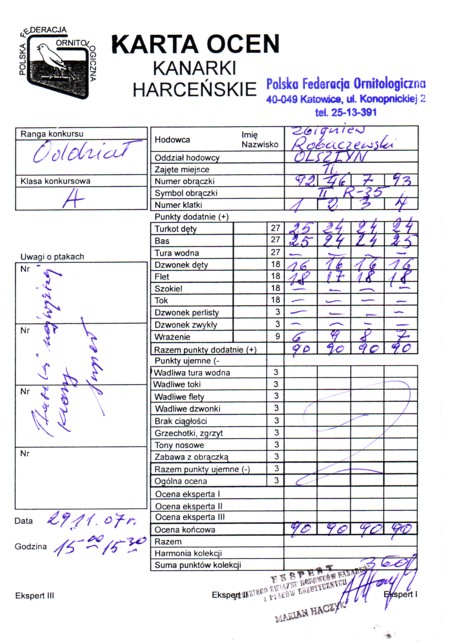 POLSKA FEDERACJA ORNITOLOGICZNA
KARTA OCEN
KANARKI
HARCEŃSKIE
Polska Federacja Ornitologiczna
40-049 Katowice, ul. Konopnickiej 2
tel. 25-13-391
Ranga konkursu
Oddział
Klasa konkursowa
A
Hodowca Imię Nazwisko Zbigniew Robaczewski
Oddział hodowcy OLSZTYN
Zajęte miejsce II
Numer obrączki 92 46 7 93
Symbol obrączki R-35
Numer klatki 1 2 3 4
Punkty dodatnie (+)
Turkot dęty 27 25 24 24 24
Bas 27 25 24 24 25
Tura wodna 27 — — — —
Dzwonek dęty 18 16 16 16 16
Flet 18 18 17 18 18
Szokiel 18 — — — —
Tok 18 — — — —
Dzwonek perlisty 3 — — — —
Dzwonek zwykły 3 — — — —
Wrażenie 9 6 9 8 7
Razem punkty dodatnie (+) 90 90 90 90
Punkty ujemne (-
Wadliwa tura wodna 3
Wadliwe toki 3
Wadliwe flety 3
Wadliwe dzwonki 3
Brak ciągłości 3
Grzechotki, zgrzyt 3
Tony nosowe 3
Zabawa z obrączką 3
Razem punkty ujemne (-) 3
Ogólna ocena 3
Ocena eksperta I
Ocena eksperta II
Ocena eksperta III
Ocena końcowa 90 90 90 90
Razem
Harmonia kolekcji
Suma punktów kolekcji 360
Uwagi o ptakach
Nr
Nr
Nr
Nr
Ptaki najwyższej klasy
Data 29 11. 07r.
Godzina 15 00 15 30
Ekspert III
Ekspert II
Ekspert I
EKSPERT
MARIAN HACZYK